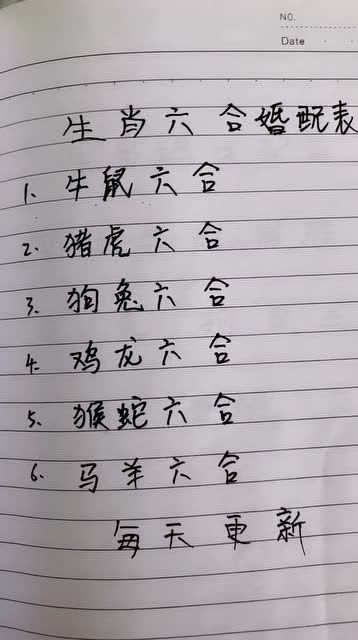 NO.
Date
生肖六合婚配表
1. 牛鼠六合
2. 猪虎六合
3. 狗兔六合
4. 鸡龙六合
5. 猴蛇六合
6. 马羊六合
每天更新